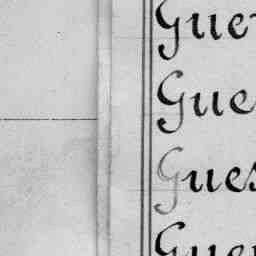 Gue
Gue
Gues
Gue